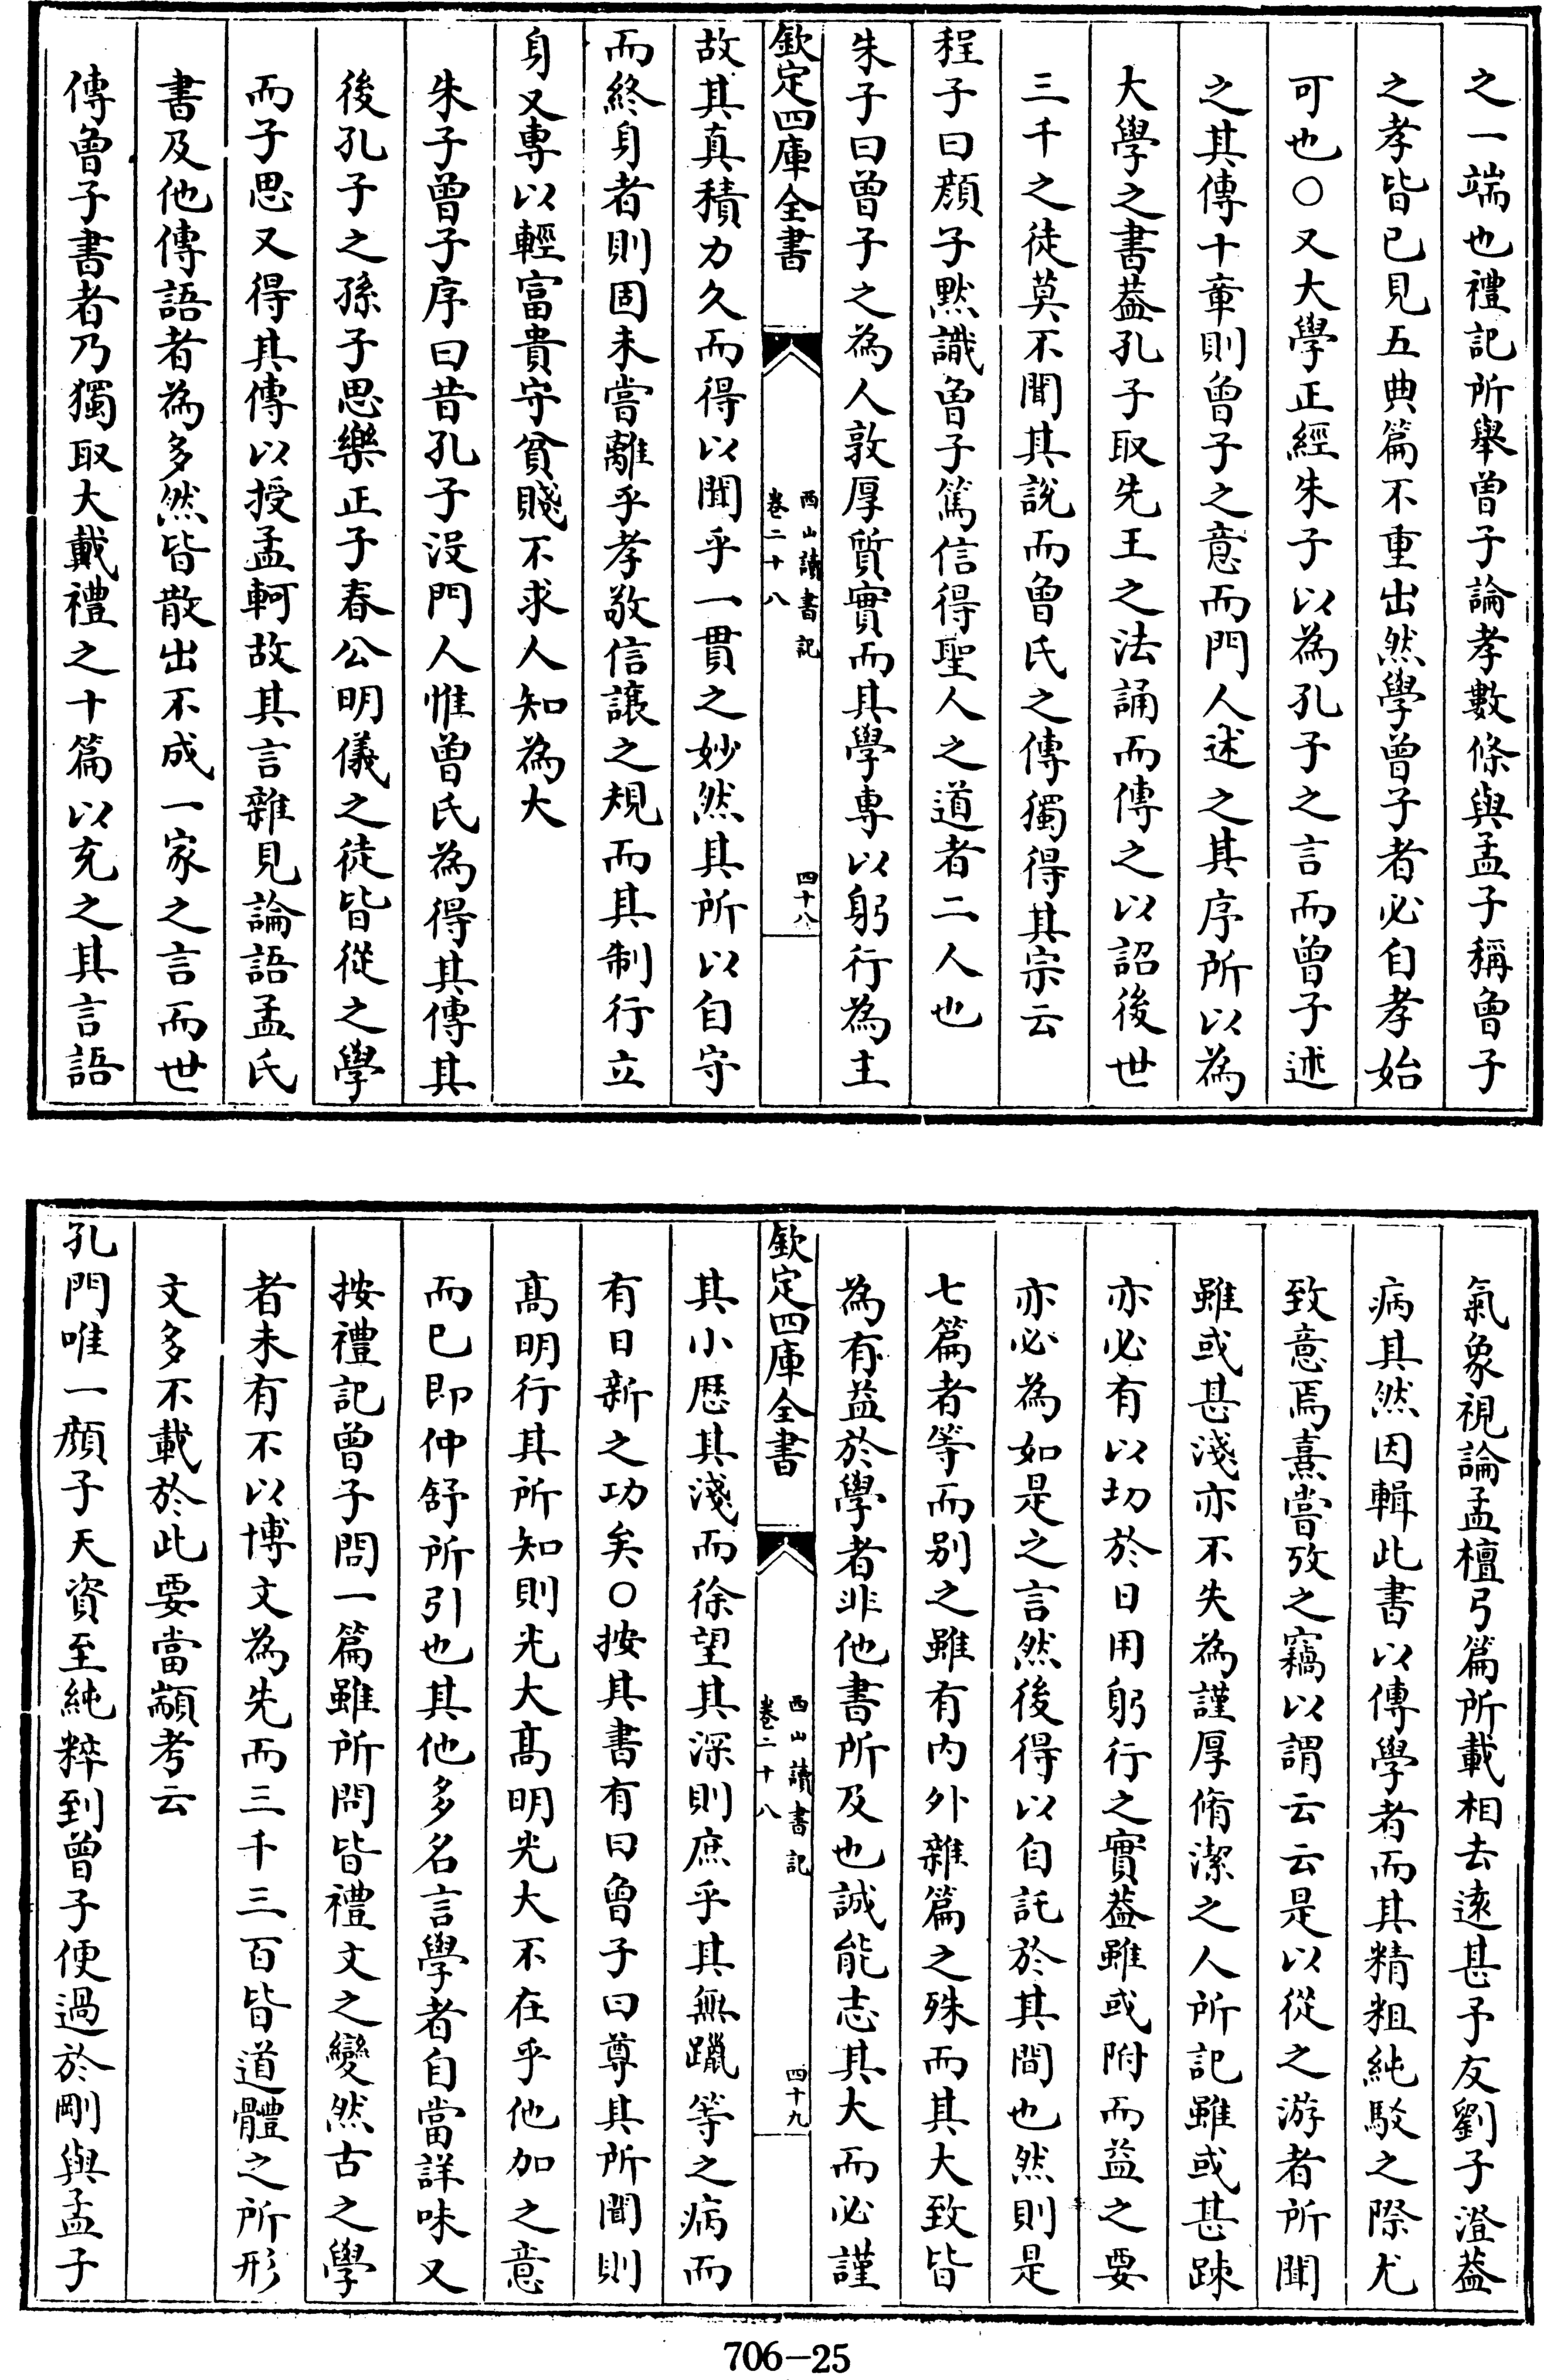 之一端也禮記所舉曾子論孝數條與孟子稱曾子
之孝皆已見五典篇不重出然學曾子者必自孝始
可也○又大學正經朱子以為孔子之言而曾子述
之其傳十章則曾子之意而門人述之其序所以為
大學之書葢孔子取先王之法誦而傳之以詔後世
三千之徒莫不聞其說而曾氏之傳獨得其宗云
程子曰顔子黙識曾子篤信得聖人之道者二人也
朱子曰曾子之為人敦厚質實而其學專以躬行為主
欽定四庫全書
西山讀書記
卷二十八
四十八
故其真積力久而得以聞乎一貫之妙然其所以自守
而終身者則固未嘗離乎孝敬信讓之規而其制行立
身又專以輕富貴守貧賤不求人知為大
朱子曾子序曰昔孔子沒門人惟曾氏為得其傳其
後孔子之孫子思樂正子春公明儀之徒皆從之學
而子思又得其傳以授孟軻故其言雜見論語孟氏
書及他傳語者為多然皆散出不成一家之言而世
傳曾子書者乃獨取大戴禮之十篇以充之其言語
氣象視論孟檀弓篇所載相去逺甚予友劉子澄葢
病其然因輯此書以傳學者而其精粗純駁之際尤
致意焉熹嘗攷之竊以謂云云是以從之游者所聞
雖或甚淺亦不失為謹厚脩潔之人所記雖或甚踈
亦必有以切於日用躬行之實葢雖或附而益之要
亦必為如是之言然後得以自託於其間也然則是
七篇者等而别之雖有内外雜篇之殊而其大致皆
為有益於學者非他書所及也誠能志其大而必謹
欽定四庫全書
西山讀書記
卷二十八
四十九
其小歴其淺而徐望其深則庶乎其無躐等之病而
有日新之功矣○按其書有曰曾子曰尊其所聞則
髙明行其所知則光大髙明光大不在乎他加之意
而已即仲舒所引也其他多名言學者自當詳味又
按禮記曾子問一篇雖所問皆禮文之變然古之學
者未有不以博文為先而三千三百皆道體之所形
文多不載於此要當顓考云
孔門唯一顔子天資至純粹到曾子便過於剛與孟子
706-25